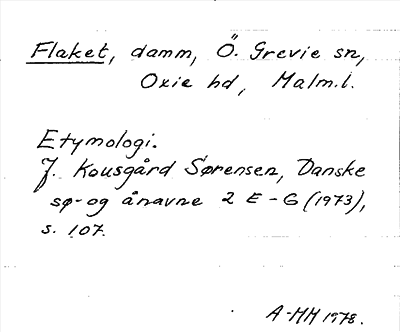 Flaket, damm, Ö. Grevie sn,
Oxie hd, Malm.l.
Etymologi.
J. Kousgård Sørensen, Danske
sø- og ånavne 2 E-G (1973),
s. 107.
A-MH 1978.